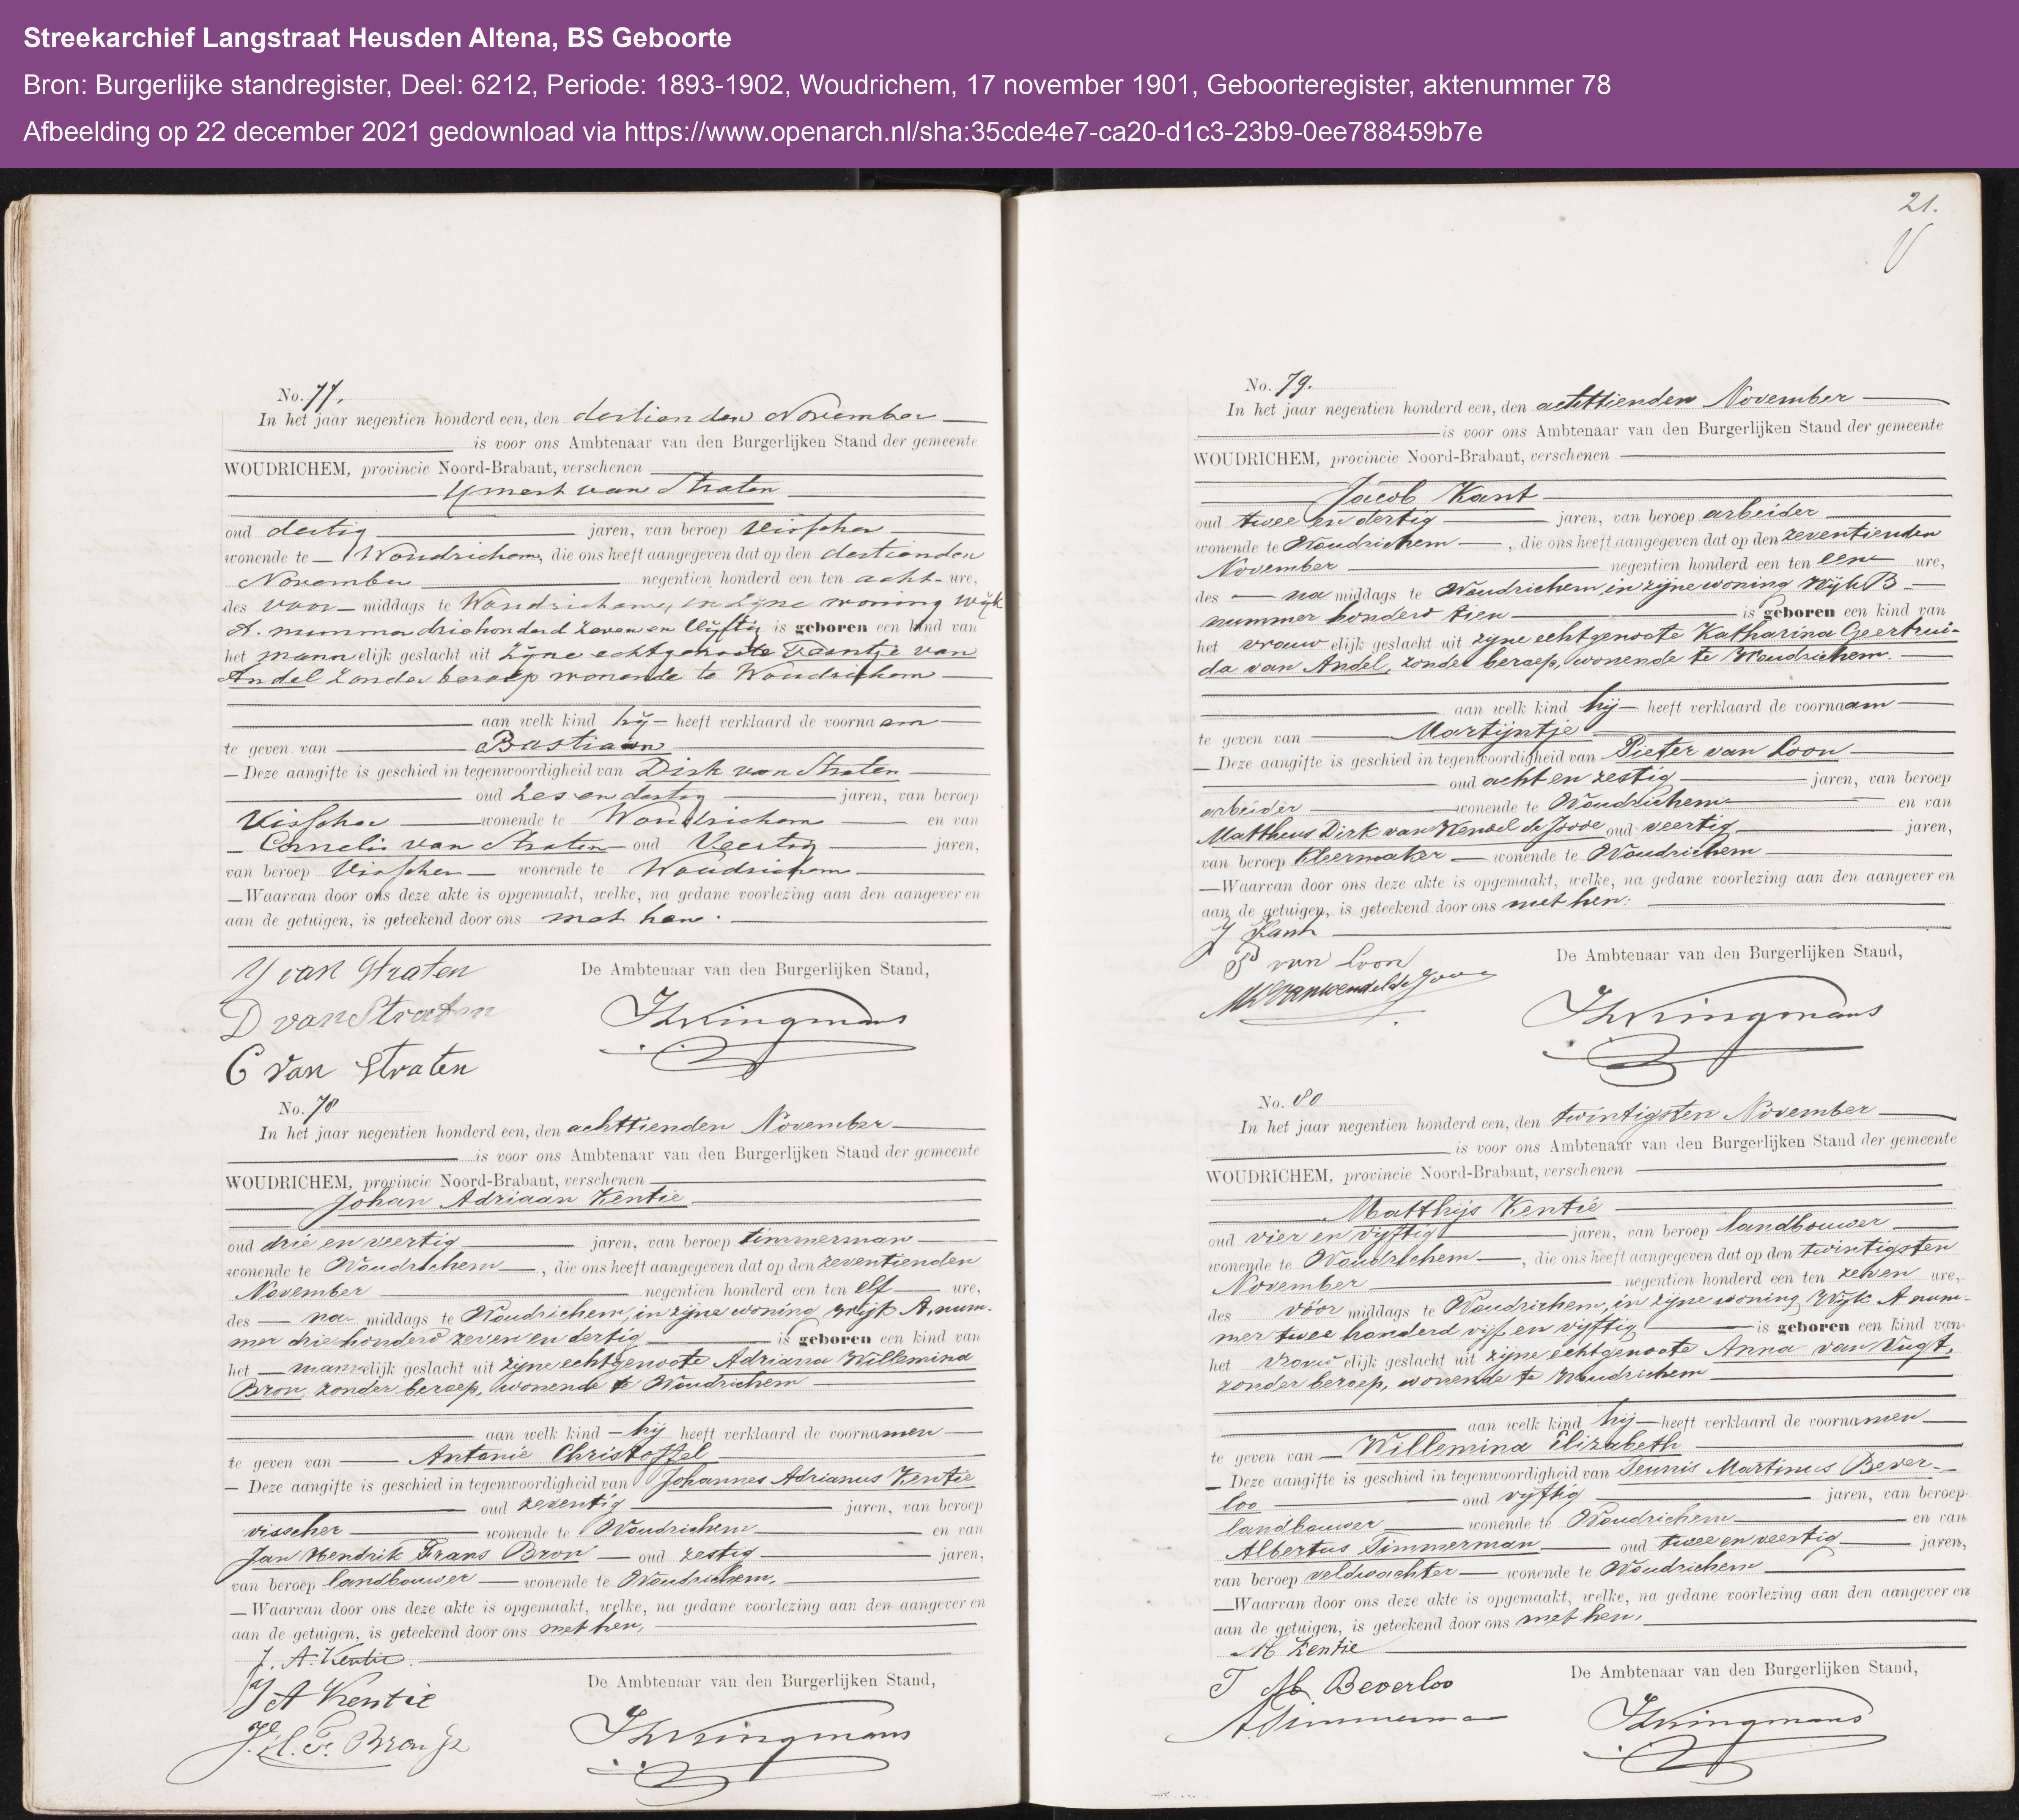 Streekarchief Langstraat Heusden Altena, BS Geboorte
Bron: Burgerlijke standregister, Deel: 6212, Periode: 1893-1902, Woudrichem, 17 november 1901, Geboorteregister, aktenummer 78
Afbeelding op 22 december 2021 gedownload via https://www.openarch.nl/sha:35cde4e7-ca20-d1c3-23b9-0ee788459b7e
No. 77.
In het jaar negentien honderd een, den dertienden November
is voor ons Ambtenaar van den Burgerlijken Stand der gemeente
WOUDRICHEM, provincie Noord-Brabant, verschenen
Ymert van Straten
oud dertig jaren, van beroep visscher
wonende te Woudrichem, die ons heeft aangegeven dat op den dertienden
November negentien honderd een ten acht ure,
des voor middags te Woudrichem, in zijne woning wijk
A. nummer driehonderd zeven en vijftig is geboren een kind van
het mannelijk geslacht uit zijne echtgenoote Teuntje van
Andel zonder beroep wonende te Woudrichem
aan welk kind hij heeft verklaard de voornaam
te geven van Bastiaan
Deze aangifte is geschied in tegenwoordigheid van Dirk van Straten
oud zes en dertig jaren, van beroep
Visscher wonende te Woudrichem en van
Cornelis van Straten oud Veertig jaren,
van beroep Visscher wonende te Woudrichem
Waarvan door ons deze akte is opgemaakt, welke, na gedane voorlezing aan den aangever en
aan de getuigen, is geteekend door ons met hen.
Y van Straten
De Ambtenaar van den Burgerlijken Stand,
D van Straten
C van Straten
No. 78
In het jaar negentien honderd een, den achttienden November
is voor ons Ambtenaar van den Burgerlijken Stand der gemeente
WOUDRICHEM, provincie Noord-Brabant, verschenen
Johan Adriaan Kentie
oud drie en veertig jaren, van beroep timmerman
wonende te Woudrichem, die ons heeft aangegeven dat op den zeventienden
November negentien honderd een ten elf ure,
des na middags te Woudrichem, in zijne woning wijk A, num-
mer driehonderd zeven en dertig is geboren een kind van
het mannelijk geslacht uit zijne echtgenoote Adriana Willemina
Bron, zonder beroep, wonende te Woudrichem
aan welk kind hij heeft verklaard de voornamen
te geven van Antonie Christoffel
Deze aangifte is geschied in tegenwoordigheid van Johannes Adrianus Kentie
oud zeventig jaren, van beroep
visscher wonende te Woudrichem en van
Jan Hendrik Frans Bron oud zestig jaren,
van beroep landbouwer wonende te Woudrichem,
Waarvan door ons deze akte is opgemaakt, welke, na gedane voorlezing aan den aangever en
aan de getuigen, is geteekend door ons met hen,
J. A. Kentie.
J A Kentie
De Ambtenaar van den Burgerlijken Stand,
J. H. F. Bron
21.
No. 79.
In het jaar negentien honderd een, den achttienden November
is voor ons Ambtenaar van den Burgerlijken Stand der gemeente
WOUDRICHEM, provincie Noord-Brabant, verschenen
Jacob Kant
oud twee en dertig jaren, van beroep arbeider
wonende te Woudrichem, die ons heeft aangegeven dat op den zeventienden
November negentien honderd een ten een ure,
des na middags te Woudrichem, in zijne woning Wijk B
nummer honderd tien is geboren een kind van
het vrouwelijk geslacht uit zijne echtgenoote Katharina Geertrui-
da van Andel, zonder beroep, wonende te Woudrichem.
aan welk kind hij heeft verklaard de voornaam
te geven van Martijntje
Deze aangifte is geschied in tegenwoordigheid van Pieter van Loon
oud acht en zestig jaren, van beroep
arbeider wonende te Woudrichem en van
Mattheus Dirk van Wendel de Joode oud veertig jaren,
van beroep kleermaker wonende te Woudrichem
Waarvan door ons deze akte is opgemaakt, welke, na gedane voorlezing aan den aangever en
aan de getuigen, is geteekend door ons met hen.
J Kant
P van Loon
De Ambtenaar van den Burgerlijken Stand,
No. 80
In het jaar negentien honderd een, den twintigsten November
is voor ons Ambtenaar van den Burgerlijken Stand der gemeente
WOUDRICHEM, provincie Noord-Brabant, verschenen
Matthijs Kentie
oud vier en vijftig jaren, van beroep landbouwer
wonende te Woudrichem, die ons heeft aangegeven dat op den twintigsten
November negentien honderd een ten zeven ure,
des vóór middags te Woudrichem, in zijne woning Wijk A num-
mer twee honderd vijf en vijftig is geboren een kind van
het vrouwelijk geslacht uit zijne echtgenoote Anna van Vugt,
zonder beroep, wonende te Woudrichem
aan welk kind hij heeft verklaard de voornamen
te geven van Willemina Elizabeth
Deze aangifte is geschied in tegenwoordigheid van Teunis Martinus Bever-
loo oud vijftig jaren, van beroep
landbouwer wonende te Woudrichem en van
Albertus Timmerman oud twee en veertig jaren,
van beroep veldwachter wonende te Woudrichem
Waarvan door ons deze akte is opgemaakt, welke, na gedane voorlezing aan den aangever en
aan de getuigen, is geteekend door ons met hen,
M Kentie
De Ambtenaar van den Burgerlijken Stand,
T M Beverloo
A Timmerman